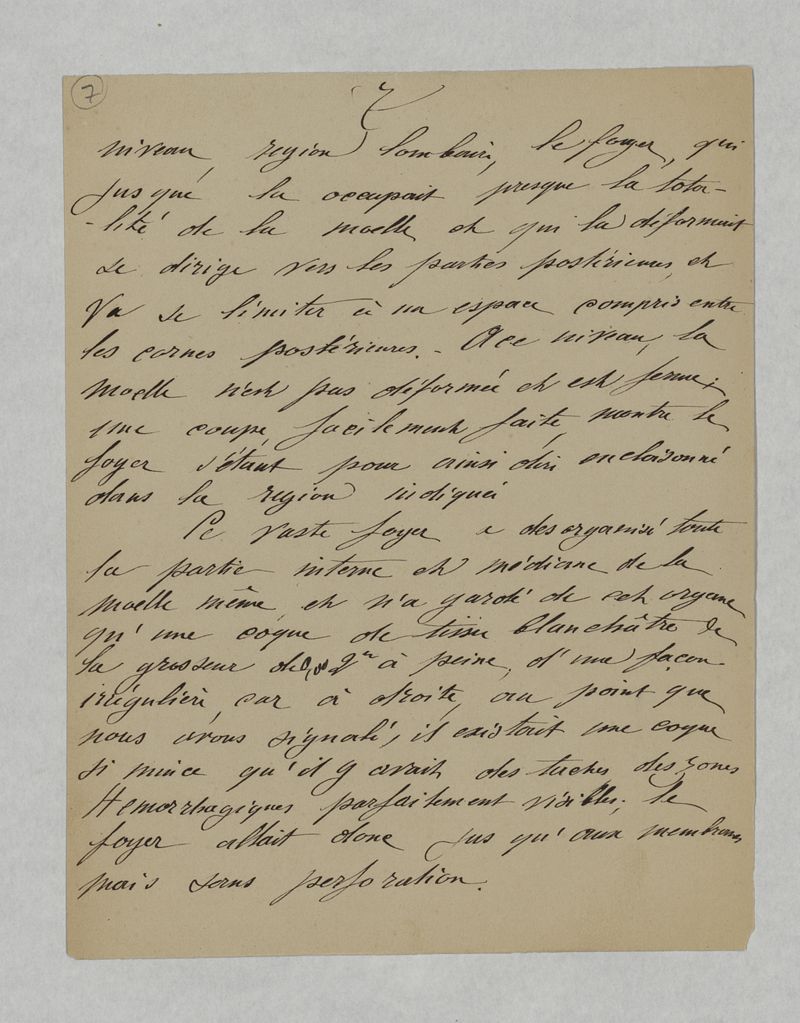 7
7
niveau, region lombaire, le foyer, qui
jusque là occupait presque la tota-
-lité de la moelle et qui la déformait
se dirige vers les parties postérieures, et
va se limiter à un espace compris entre
les cornes postérieures. - A ce niveau, la
moelle n'est pas déformée et est ferme;
une coupe, facilement faite, montre le
foyer s'étant pour ainsi dire encloisonné
dans la region indiquée
Ce vaste foyer a desorganisé toute
la partie interne et médiane de la
moelle même, et n'a gardé de cet organe
qu'une coque de tissu blanchâtre de
la grosseur de 0,002m à peine, d'une façon
irrégulière, car à droite, au point que
nous avons signalé, il existait une coque
si mince qu'il y avait des taches, des zones
Hemorrhagiques parfaitement visibles; le
foyer allait donc jus qu'aux membranes
mais sans perforation.